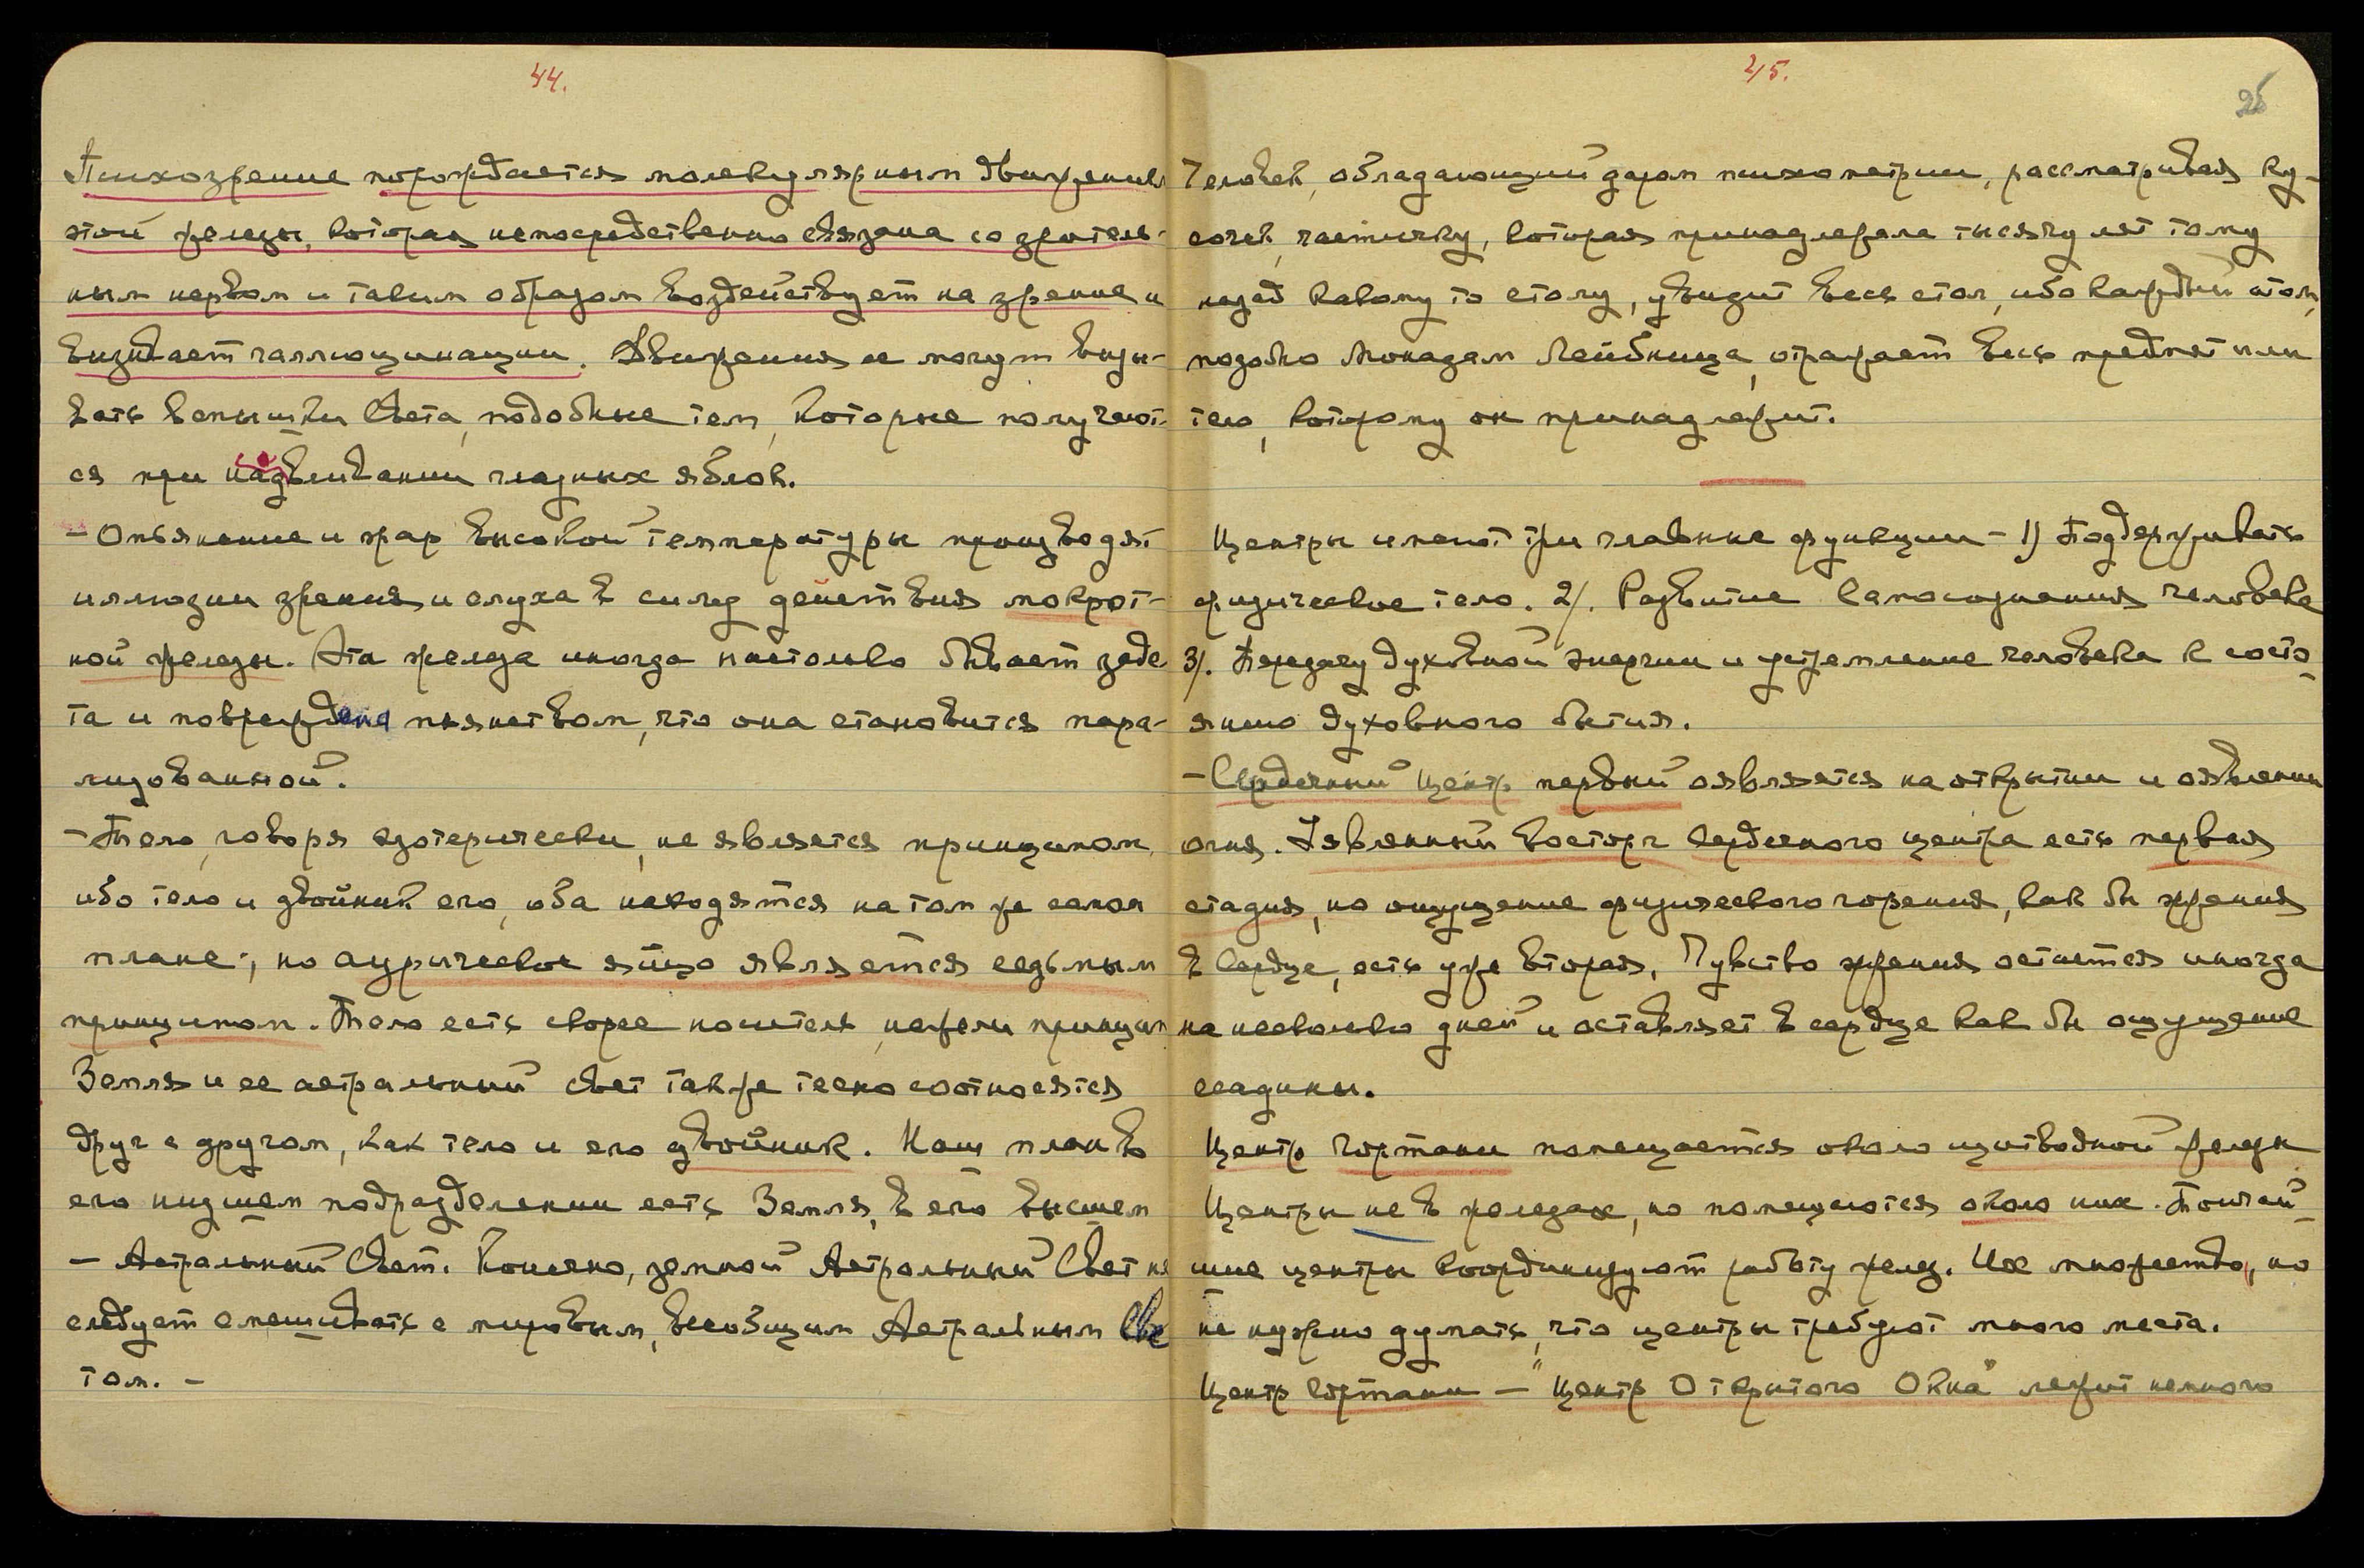 44.
Психозрение порождается молекулярным движением
этой железы, которая непосредственно связана со зритель-
ным нервом и таким образом воздействует на зрение и
вызывает галлюцинации. Движения ее могут вызы-
вать вспышки Света, подобные тем, которые получают-
ся при надавливании глазных яблок.
- Опьянение и жар высокой температуры производят
иллюзии зрения и слуха в силу действия мокрот-
ной железы. Эта железа иногда настолько бывает заде
та и повреждена пьянством, что она становится пара-
лизованной.
- Тело, говоря эзотерически, не является принципом,
ибо тело и двойник его, оба находятся на том же самом
плане; но аурическое яйцо является седьмым
принципом. Тело есть скорее носитель, нежели принцип
Земля и ее астральный свет также тесно соотносятся
друг с другом, как тело и его двойник. Наш план в
его низшем подразделении есть Земля, в его высшем
- Астральный Свет. Конечно, земной Астральный Свет не
следует смешивать с мировым, всеобщим Астральным Све
том. -
45.
25
Человек, обладающий даром психометрии, рассматривая ку-
сочек, частичку, которая принадлежала тысячу лет тому
назад какому то столу, увидит весь стол, ибо каждый атом,
подобно Монадам Лейбница, отражает весь предмет или
тело, которому он принадлежит.
Центры имеют три главные функции - 1) Поддерживать
физическое тело. 2). Развитие самосознания человека
3). Передачу духовной энергии и устремление человека к состо-
янию духовного бытия.
- Сердечный центр первый отзывается на открытии и явлении
огня. Явленный восторг сердечного центра есть первая
стадия, но ощущение физического горения, как бы жжения
в сердце, есть уже вторая. Чувство жжения остается иногда
на несколько дней и оставляет в сердце как бы ощущение
ссадины.
Центр Гортани помещается около щитовидной железы
Центры не в железах, но помещаются около них. Тончай-
шие центры координируют работу желез. Их множество, но
не нужно думать, что центры требуют много места.
Центр Гортани - "Центр Открытого Окна" лежит немного